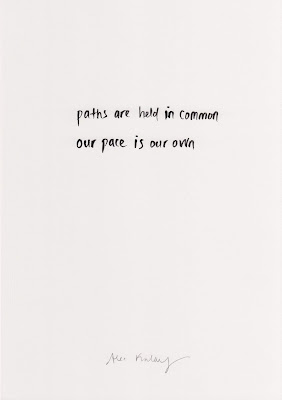 paths are held in common
our pace is our own
Alec Finlay